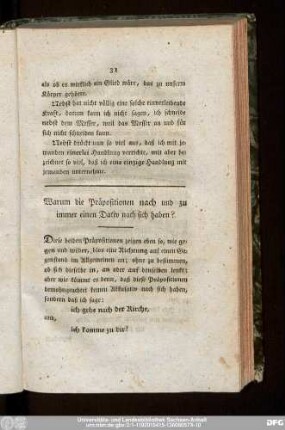 31
als ob er wirklich ein Glied wäre, das zu unserm
Körper gehöret.
Nebst hat nicht völlig eine solche einverleibende
Kraft, darum kann ich nicht sagen, ich schneide
nebst dem Messer, weil das Messer an und für
sich nicht schneiden kann.
Nebst drückt nun so viel aus, daß ich mit je-
manden einerlei Handlung verrichte, mit aber be-
zeichnet so viel, daß ich eine einzige Handlung mit
jemanden unternehme.
Warum die Präpositionen nach und zu
immer einen Dativ nach sich haben?
Diese beiden Präpositionen zeigen eben so, wie ge-
gen und wider, blos eine Richtung auf einen Ge-
genstand im Allgemeinen an; ohne zu bestimmen,
ob sich dieselbe in, an oder auf denselben lenkt;
aber wie kömmt es denn, daß diese Präpositionen
demohngeachtet keinen Akkusativ nach sich haben,
sondern daß ich sage:
ich gehe nach der Kirche,
und,
ich komme zu dir?
Universitäts- und Landesbibliothek Sachsen-Anhalt
DFG